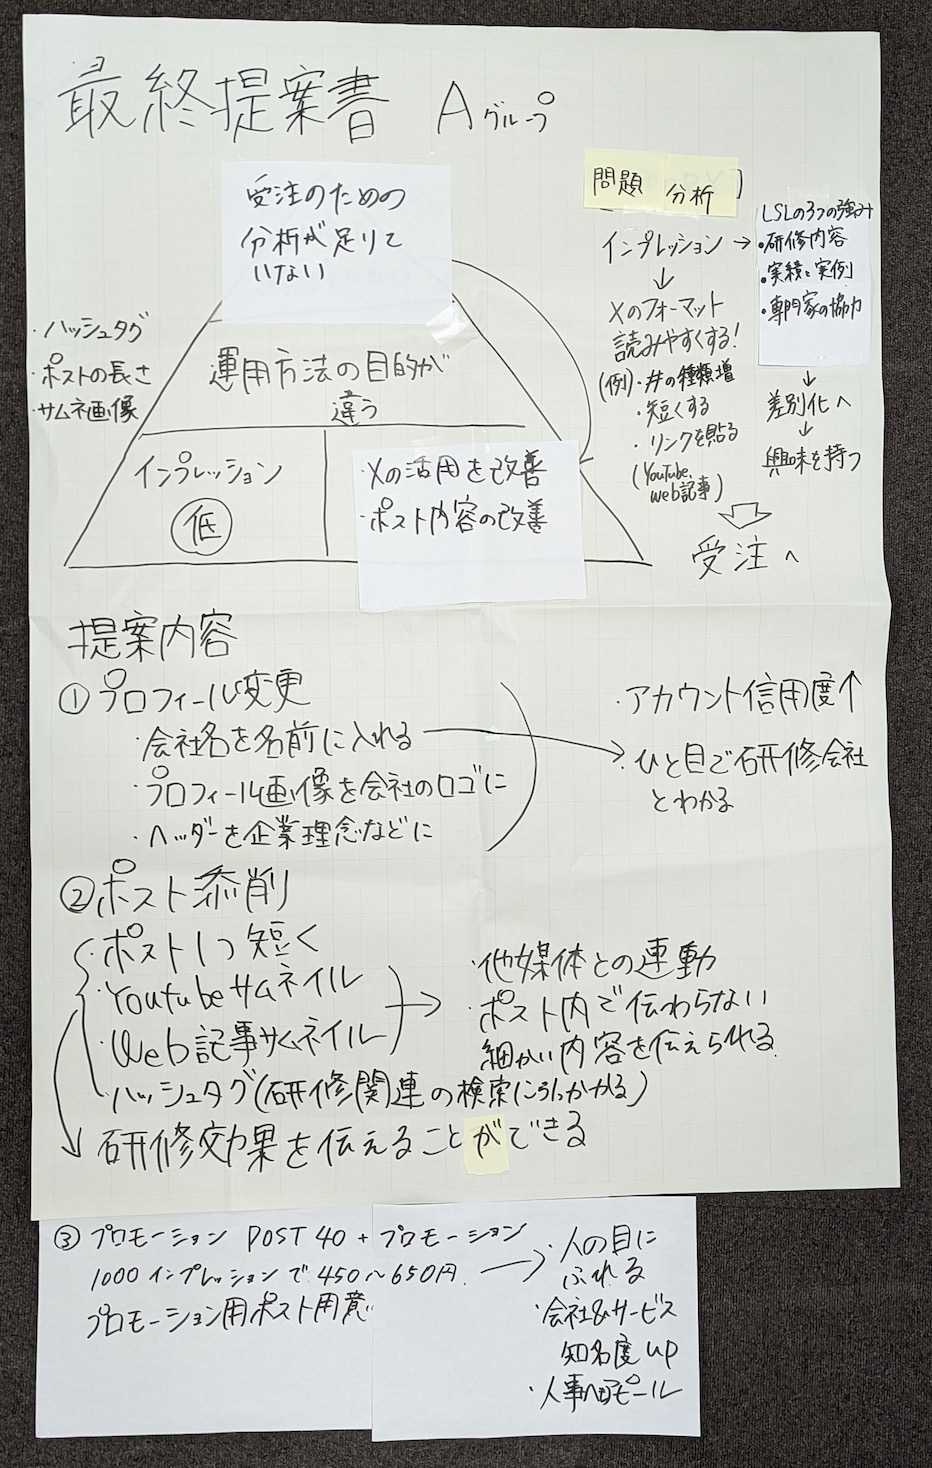 最終提案書 Aグループ
受注のための
分析が足りて
いない
・ハッシュタグ
・ポストの長さ
・サムネ画像
運用方法の目的が
違う
インプレッション
低
・Xの活用を改善
・ポスト内容の改善
問題 分析
インプレッション→
↓
Xのフォーマット
読みやすくする!
(例)・#の種類増
・短くする
・リンクを貼る
(YouTube、
Web記事)
LSLの3つの強み
・研修内容
・実績と実例
・専門家の協力
↓
差別化へ
↓
興味を持つ
受注へ
提案内容
①プロフィール変更
・会社名を名前に入れる
・プロフィール画像を会社のロゴに
・ヘッダーを企業理念などに
・アカウント信用度↑
・ひと目で研修会社
とわかる
②ポスト添削
・ポスト1つ短く
・Youtubeサムネイル
・Web記事サムネイル
・ハッシュタグ(研修関連の検索にひっかかる)
→
・他媒体との連動
・ポスト内で伝わらない
細かい内容を伝えられる
研修効果を伝えることができる
③プロモーション POST 40 + プロモーション
1000インプレッションで450〜650円 →
プロモーション用ポスト用意
・人の目に
ふれる
・会社&サービス
知名度up
・人事へアピール